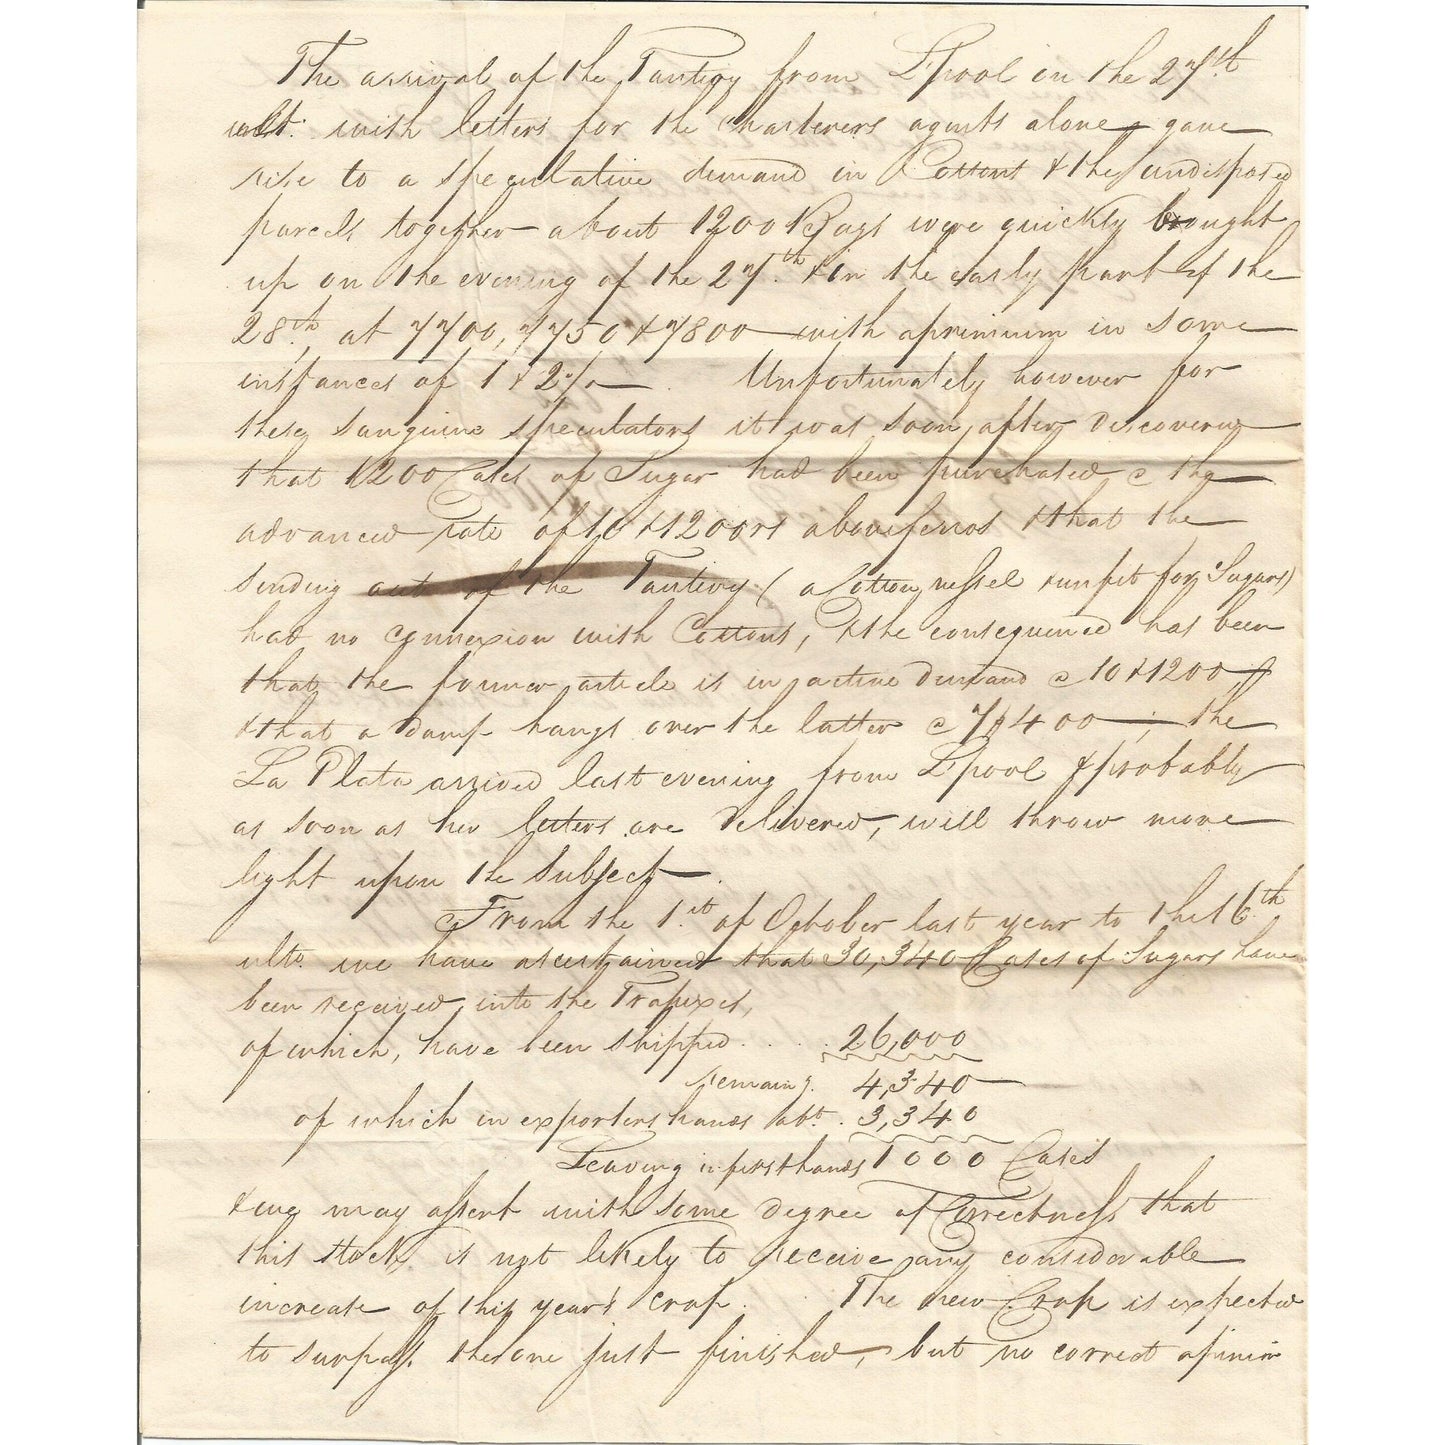 The arrival of the Tantivy from L'pool on the 27th
ult: with letters for the Charterers agents alone, gave
rise to a speculative demand in Cottons & the undisposed
parcels together about 1200 Bags were quickly bought
up on the evening of the 27th & in the early part of the
28th, at 7700, 7750 & 7800 with apremium in some
instances of 1 & 2 %. Unfortunately however for
these sanguine speculators it was soon after discovered
that 1200 Cases of Sugar had been purchased @ the
advanced rate of 10 & 1200rs above ferros & that the
sending out of the Tantivy (a Cotton vessel & unfit for Sugars)
had no connexion with Cottons, & the consequence has been
that the former article is in active demand @ 10 & 1200,
& that a damp hangs over the latter @ 7 400; the
La Plata arrived last evening from L'pool & probably
as soon as her letters are delivered, will throw more
light upon the Subject.
From the 1st of October last year to the 16th
ulto. we have ascertained that 30,340 Cases of Sugars have
been received into the Trapixes,
of which, have been shipped . . . . 26,000
remaing. 4,340
of which in exporters hands abt. 3,340
Leaving in first hands 1000 Cases
& we may assert with some degree of Correctness that
this stock is not likely to receive any considerable
increase of this year's crop. The new Crop is expected
to surpass the one just finished, but no correct opinion